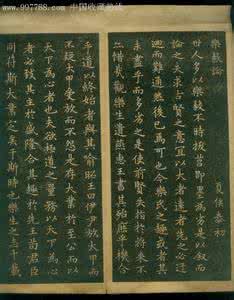 com-中国收藏热线
樂毅論
夏侯泰初
世人多以樂毅不時拔莒即墨為劣是以叙而
論之夫求古賢之意宜以大者遠者先之必迂
迴而難通然後已焉可也今樂氏之趣或者其
未盡乎而多劣之是使前賢失指於將來不
亦惜哉觀樂生遺燕惠王書其殆庶乎機合
乎道以終始者與其喻昭王曰伊尹放大甲而
不疑大甲受放而不怨是存大業於至公而以
天下為心者也夫欲極道之量務以天下為心
者必致其主於盛隆合其趣於先王苟君臣
同符斯大業定矣于斯時也樂生之志千載